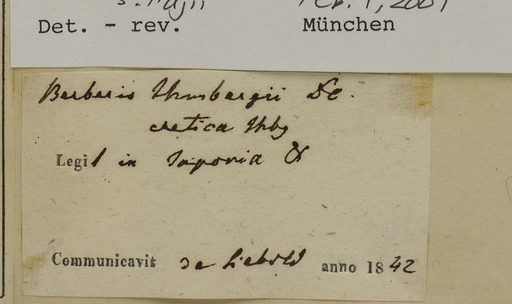 Det. - rev. München
Berberis Thunbergii DC.
cretica Thbg
Legit in Japonia
Communicavit de Siebold anno 1842